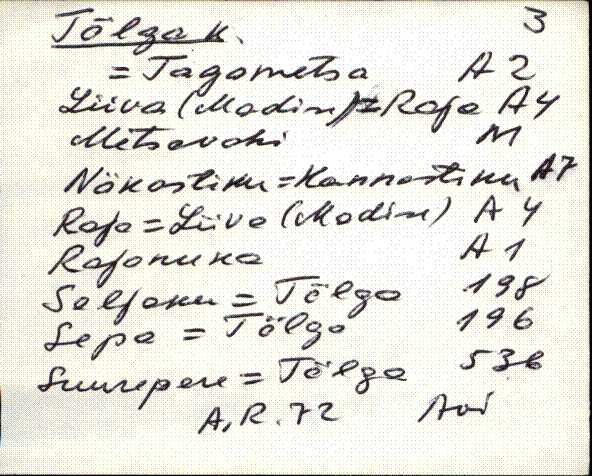 Tõlga k. 3
= Tagametsa A 2
Liiva (Madise) = Raja A 4
Metsavahi M
Näkastiku = Kannastiku A7
Raja = Liiva (Madise) A 4
Rajanuka A 1
Seljaku = Tõlga 198
Sepa = Tõlga 196
Suurepere = Tõlga 536
A, R. 72 Avi